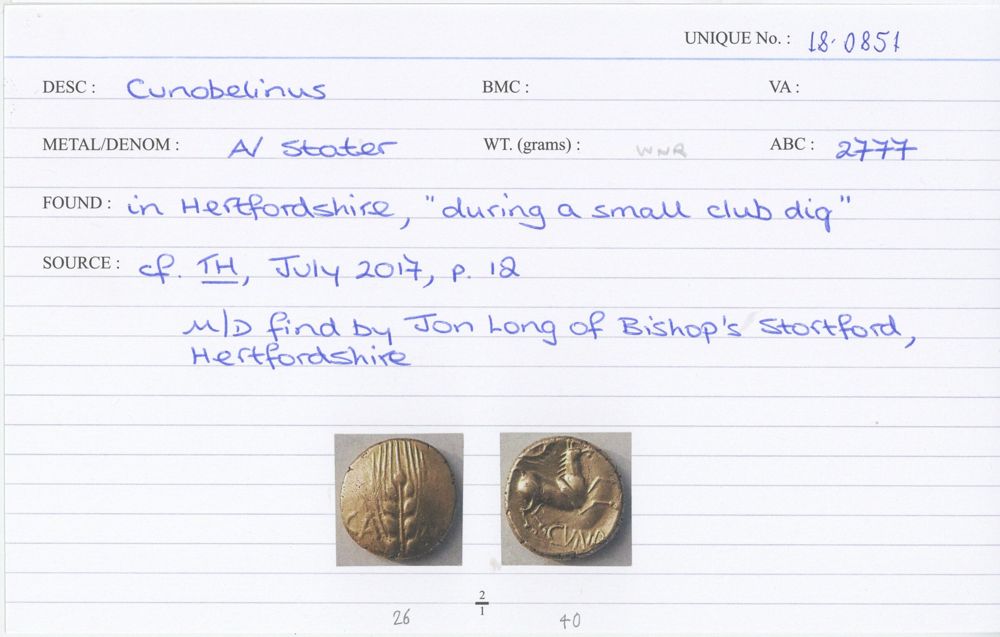 UNIQUE No. : 18.0851
DESC : Cunobelinus BMC : VA :
METAL/DENOM : A/ Stater WT. (grams) : WNR ABC : 2777
FOUND : in Hertfordshire, "during a small club dig"
SOURCE : cf. TH, July 2017, p. 12
M/D find by Jon Long of Bishop's Stortford,
Hertfordshire
CA
CVNO
2
1
26 40